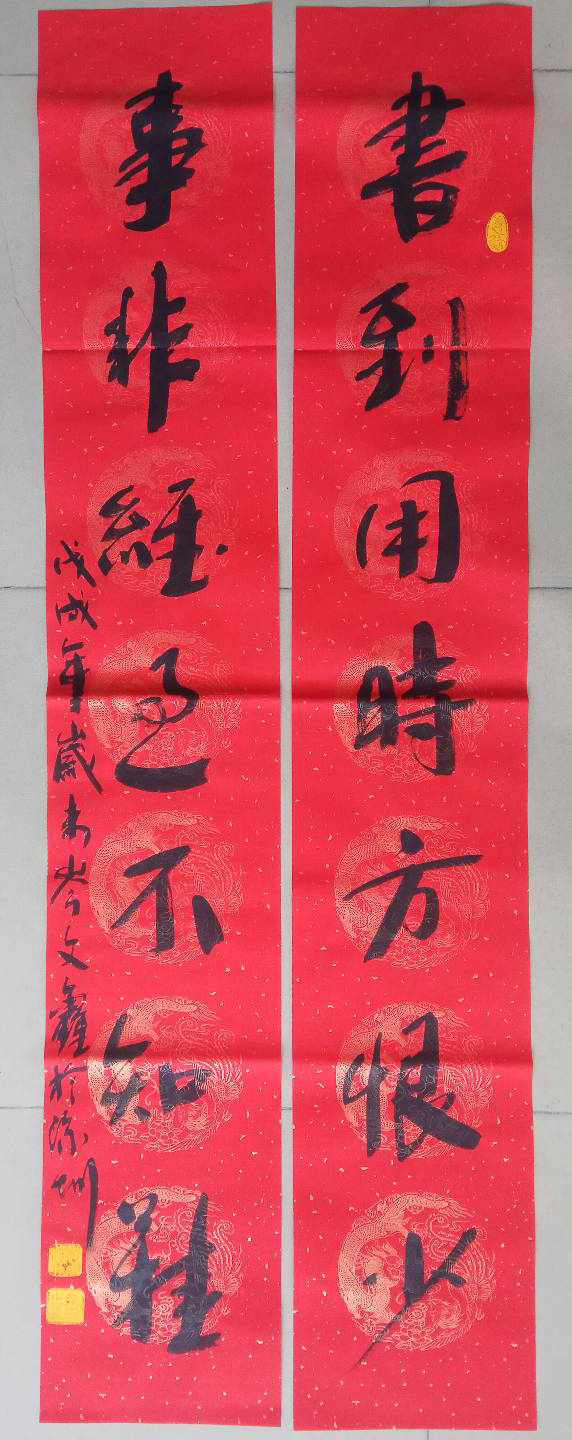 書到用時方恨少
事非經過不知難
戊戌年歲末岑文鑫於深圳